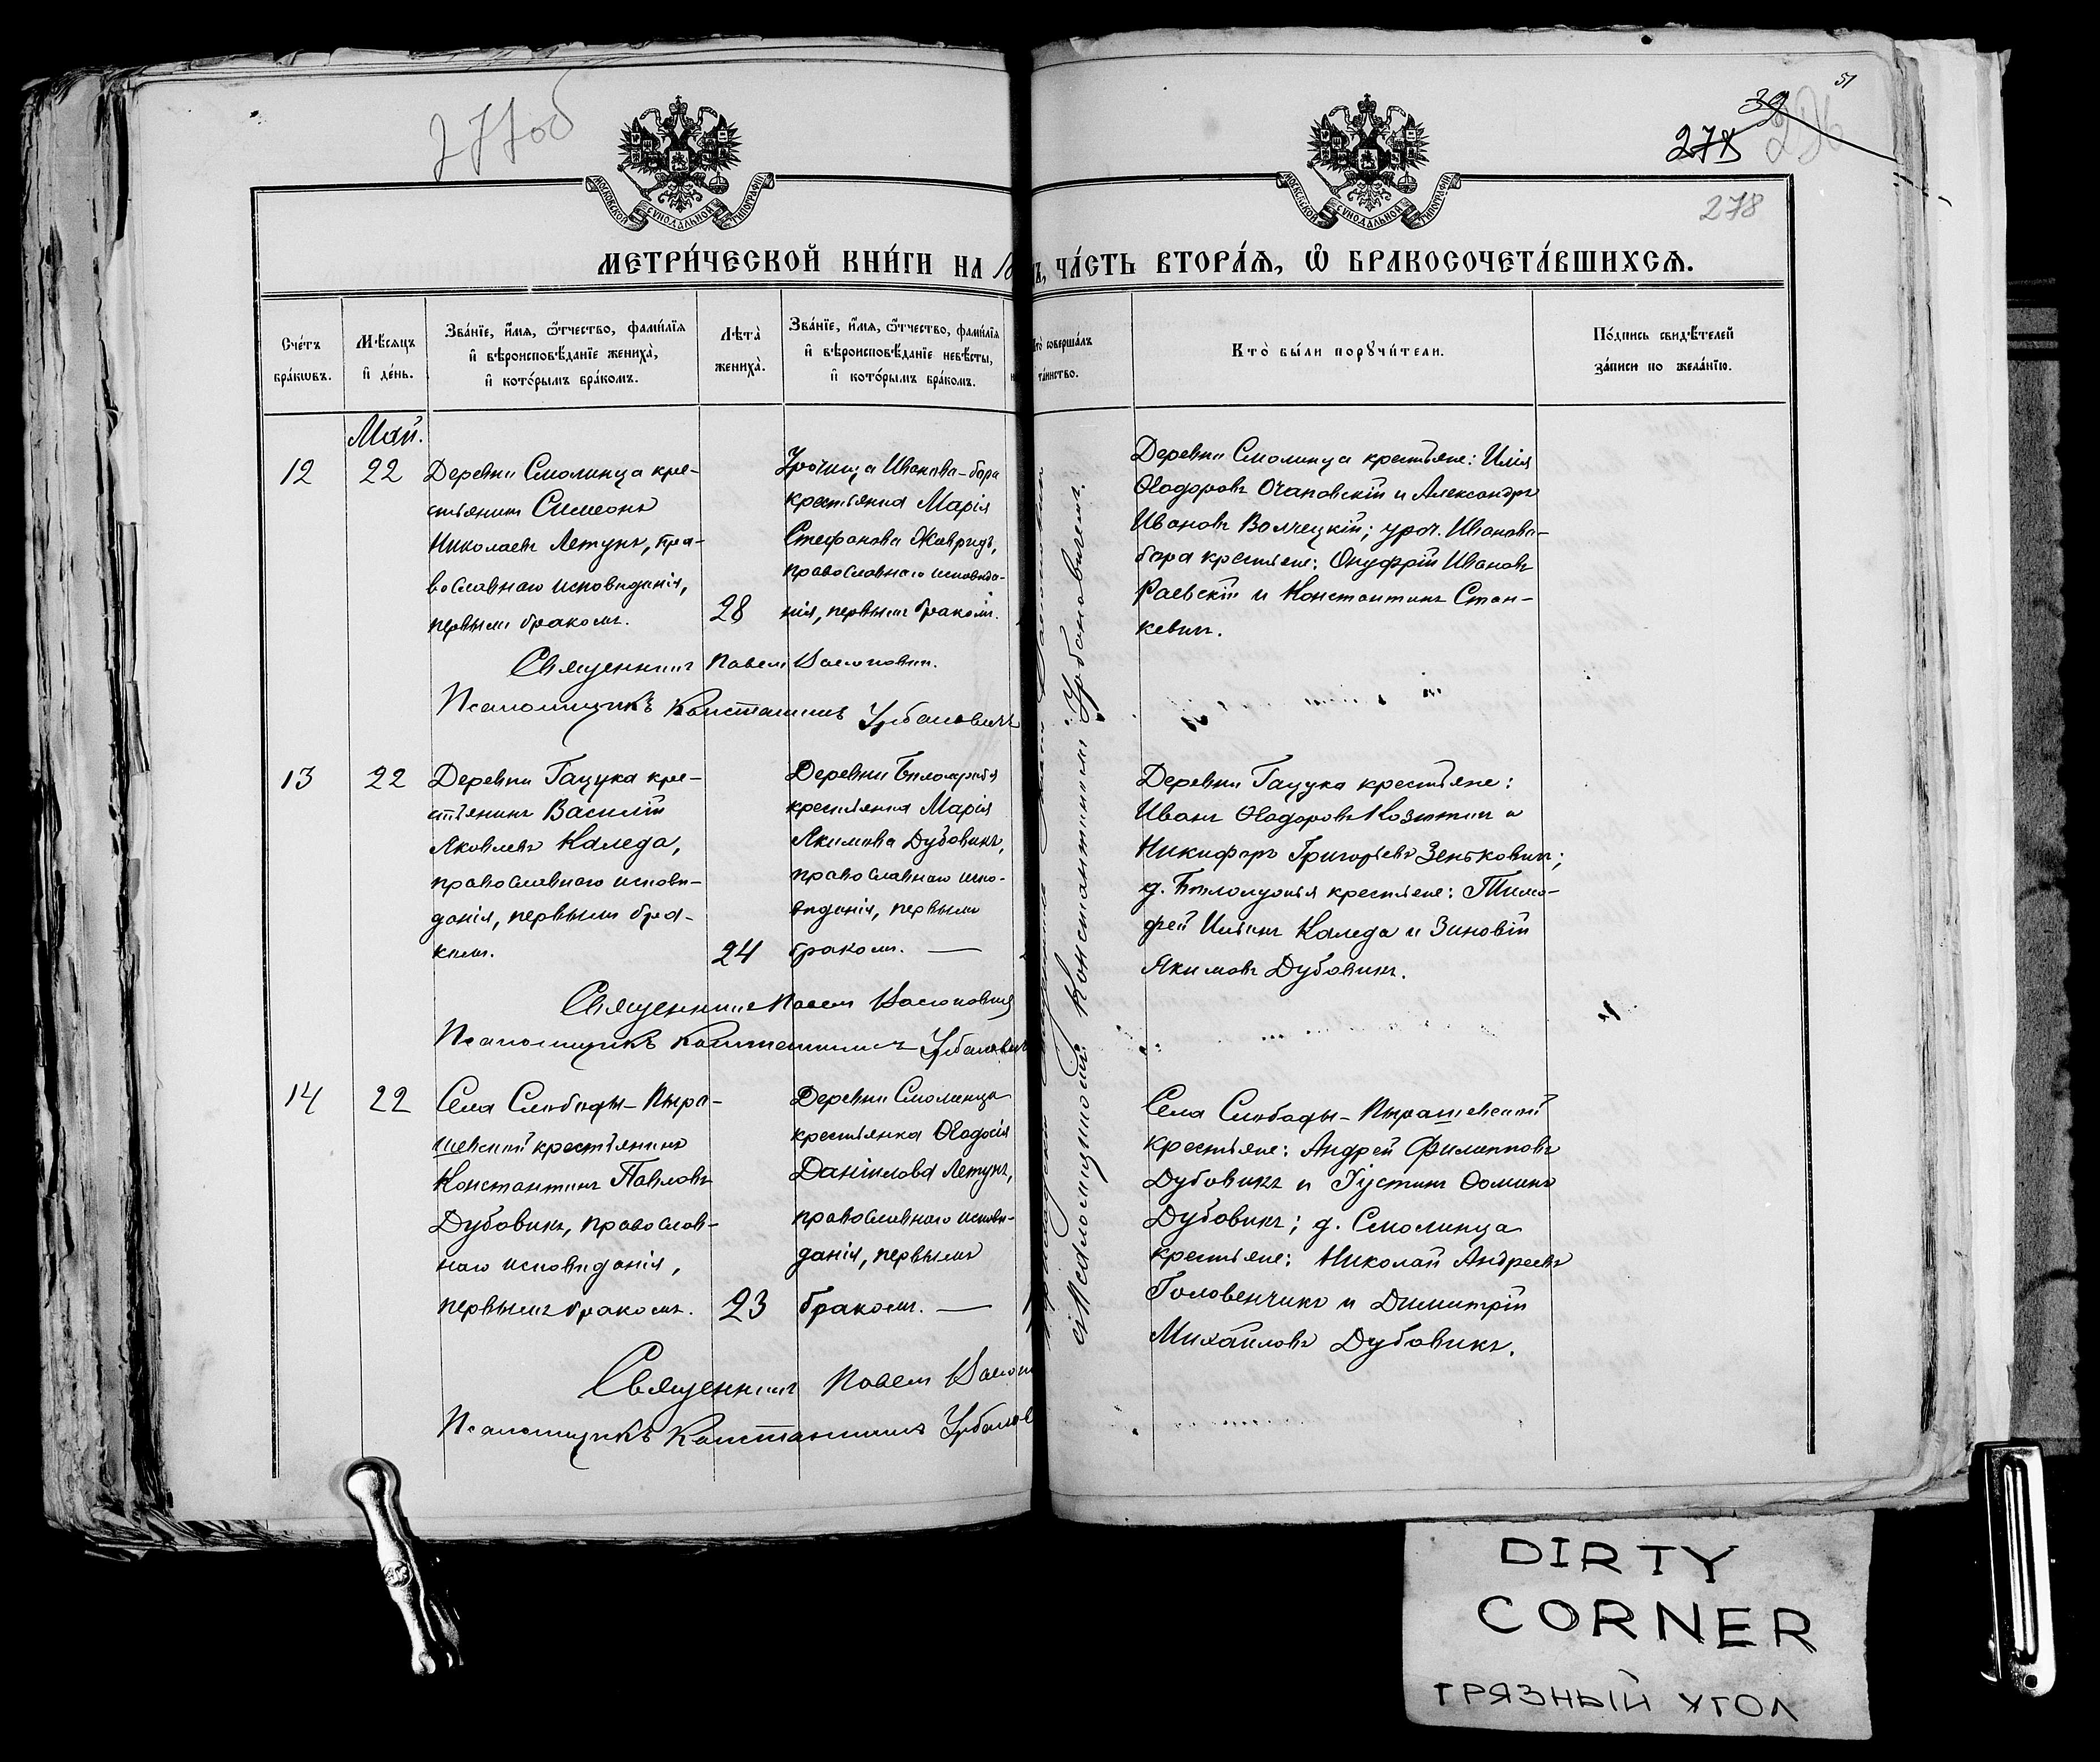 277об
51
39
278
278
МОСКОВСКОЙ СУНОДАЛЬНОЙ ТИПОГРАФІИ
МОСКОВСКОЙ СУНОДАЛЬНОЙ ТИПОГРАФІИ
МЕТРИ́ЧЕСКОЙ КНИ́ГИ НА 18
ЧА́СТЬ ВТОРА́Ѧ, Ѿ БРАКОСОЧЕТА́ВШИХСѦ.
Сче́тъ
бра́кѡвъ.
Мѣ́сѧцъ
и҆ де́нь.
Зва́нїе, и҆́мѧ, ѻ҆́тчество, фами́лїѧ
и҆ вѣроисповѣ́данїе жениха̀,
и҆ кото́рымъ бра́комъ.
Лѣта̀
жениха̀.
Зва́нїе, и҆́мѧ, ѻ҆́тчество, фами́лїѧ
и҆ вѣроисповѣ́данїе невѣ́сты,
и҆ кото́рымъ бра́комъ.
Кто̀ соверша́лъ
та́инство.
Кто̀ бы́ли порꙋчи́тели.
По́дпись свидѣ́телей
за́писи по жела́нїю.
Май.
12
22
Деревни Смолинца кре-
стьянинъ Симеонъ
Николаевъ Летунъ, пра-
вославнаго исповѣданія,
первымъ бракомъ.
28
Урочища Иванова-бора
крестьянка Марія
Стефанова Жавридъ,
православнаго исповѣда-
нія, первымъ бракомъ.
Деревни Смолинца крестьяне: Илія
Ѳеодоровъ Очаповскій и Александръ
Ивановъ Волчецкій; уроч. Иванова-
бора крестьяне: Онуфрій Ивановъ
Раевскій и Константинъ Стан-
кевичъ.
Священникъ Павелъ
Псаломщикъ Константинъ Урбановичъ
13
22
Деревни Гацука кре-
стьянинъ Василій
Яковлевъ Каледа,
православнаго исповѣ-
данія, первымъ бра-
комъ.
24
Деревни
крестьянка Марія
Якимова Дубовикъ,
православнаго испо-
вѣданія, первымъ
бракомъ. —
Деревни Гацука крестьяне:
Иванъ Ѳеодоровъ и
Никифоръ Григорьевъ Зеньковичъ;
д. крестьяне: Тимо-
фей Ильинъ Каледа и Зиновій
Якимовъ Дубовикъ.
Священникъ Павелъ
Псаломщикъ Константинъ Урбановичъ
14
22
Села Слободы-Пыра-
шевской крестьянинъ
Константинъ Павловъ
Дубовикъ, православ-
наго исповѣданія,
первымъ бракомъ.
23
Деревни Смолинца
крестьянка Ѳеодосія
Даніилова Летунъ,
православнаго исповѣ-
данія, первымъ
бракомъ. —
Села Слободы-Пырашевской
крестьяне: Андрей Филипповъ
Дубовикъ и Іустинъ Ѳоминъ
Дубовикъ; д. Смолинца
крестьяне: Николай Андреевъ
Головенчикъ и Димитрій
Михайловъ Дубовикъ.
Священникъ Павелъ
Псаломщикъ Константинъ Урбанов
съ Псаломщикомъ Константиномъ Урбановичемъ.
DIRTY
CORNER
ГРЯЗНЫЙ УГОЛ